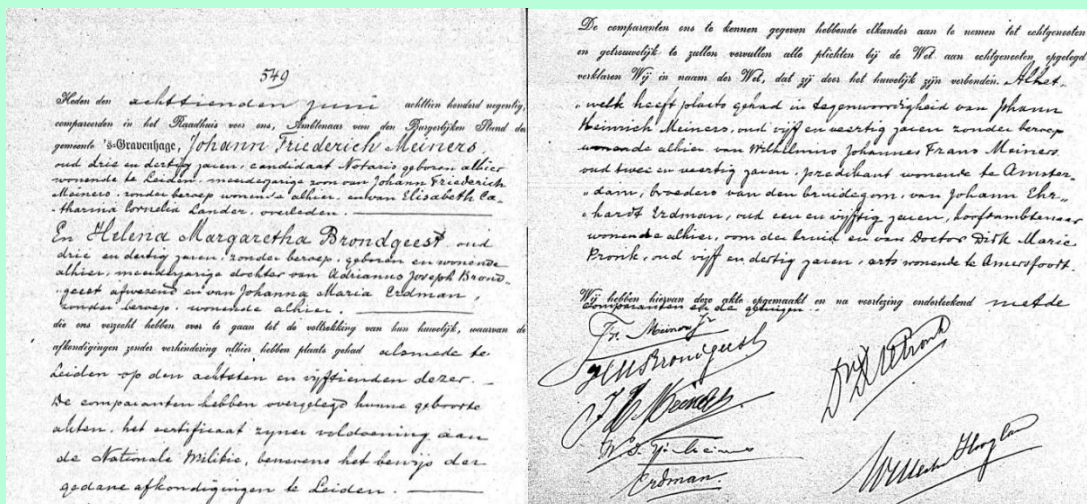 549
Heden den achttienden Juni achttien honderd negentig,
compareerden in het Raadhuis voor ons, Ambtenaar van den Burgerlijken Stand der
gemeente 's-Gravenhage, Johann Friederich Meiners,
oud drie en dertig jaren, candidaat Notaris geboren alhier
wonende te Leiden, meerderjarige zoon van Johann Friederich
Meiners, zonder beroep wonende alhier, en van Elisabeth Ca-
tharina Cornelia Lander, overleden.
En Helena Margaretha Brondgeest, oud
drie en dertig jaren, zonder beroep, geboren en wonende
alhier, meerderjarige dochter van Adrianus Joseph Brond-
„geest afwezend en van Johanna Maria Erdman,
zonder beroep, wonende alhier.
die ons verzocht hebben over te gaan tot de voltrekking van hun huwelijk, waarvan de
afkondigingen zonder verhindering alhier hebben plaats gehad alsmede te
Leiden op den achtsten en vijftienden dezer.
De comparanten hebben overgelegd hunne geboorte
akten, het certificaat zijner voldoening aan
de Nationale Militie, benevens het bewijs der
gedane afkondigingen te Leiden.
De comparanten ons te kennen gegeven hebbende elkander aan te nemen tot echtgenooten
en getrouwelijk te zullen vervullen alle plichten bij de Wet aan echtgenooten opgelegd
verklaren Wij in naam der Wet, dat zij door het huwelijk zijn verbonden. Al het-
„welk heeft plaats gehad in tegenwoordigheid van Johann
Heinrich Meiners, oud vijf en veertig jaren zonder beroep
wonende alhier van Wilhelmus Johannes Frans Meiners
oud twee en veertig jaren, predikant wonende te Amster-
„dam, broeders van den bruidegom, van Johann Ehr-
„hardt Erdman, oud een en vijftig jaren, hoofdambtenaar
wonende alhier, oom der bruid en van Doctor Dirk Marie
Pronk, oud vijf en dertig jaren, arts wonende te Amersfoort.
Wij hebben hiervan deze akte opgemaakt en na voorlezing onderteekend met de
comparanten en de getuigen.
Fr. Meiners Jr
HM Brondgeest
Erdman.